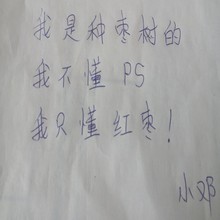 我是种枣树的
我不懂 PS
我只懂红枣!
小邓